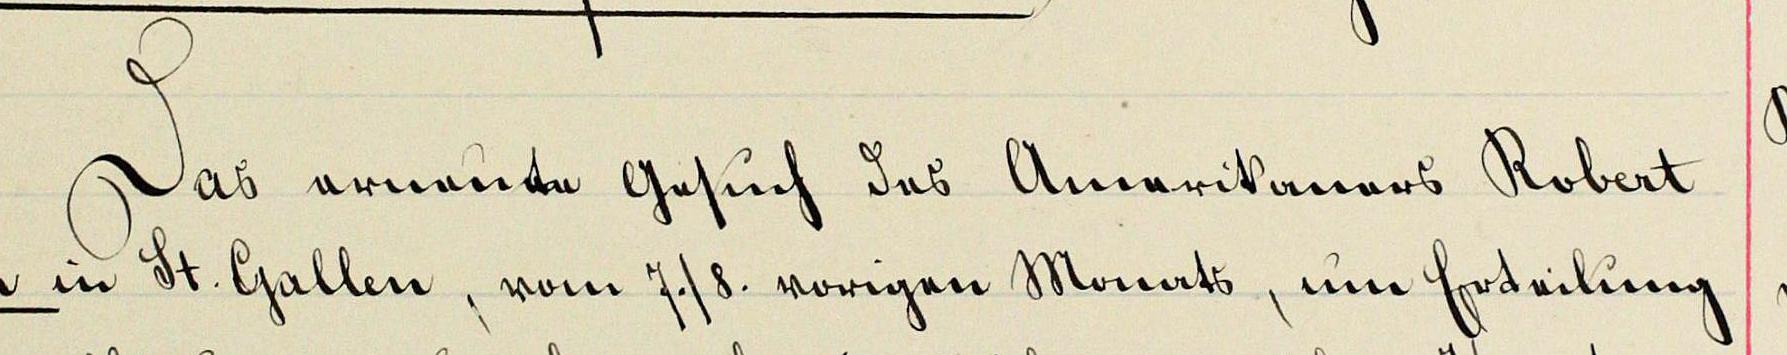 Das erneute Gesuch des Amerikaners Robert
in St. Gallen, vom 7./8. vorigen Monats, um Erteilung